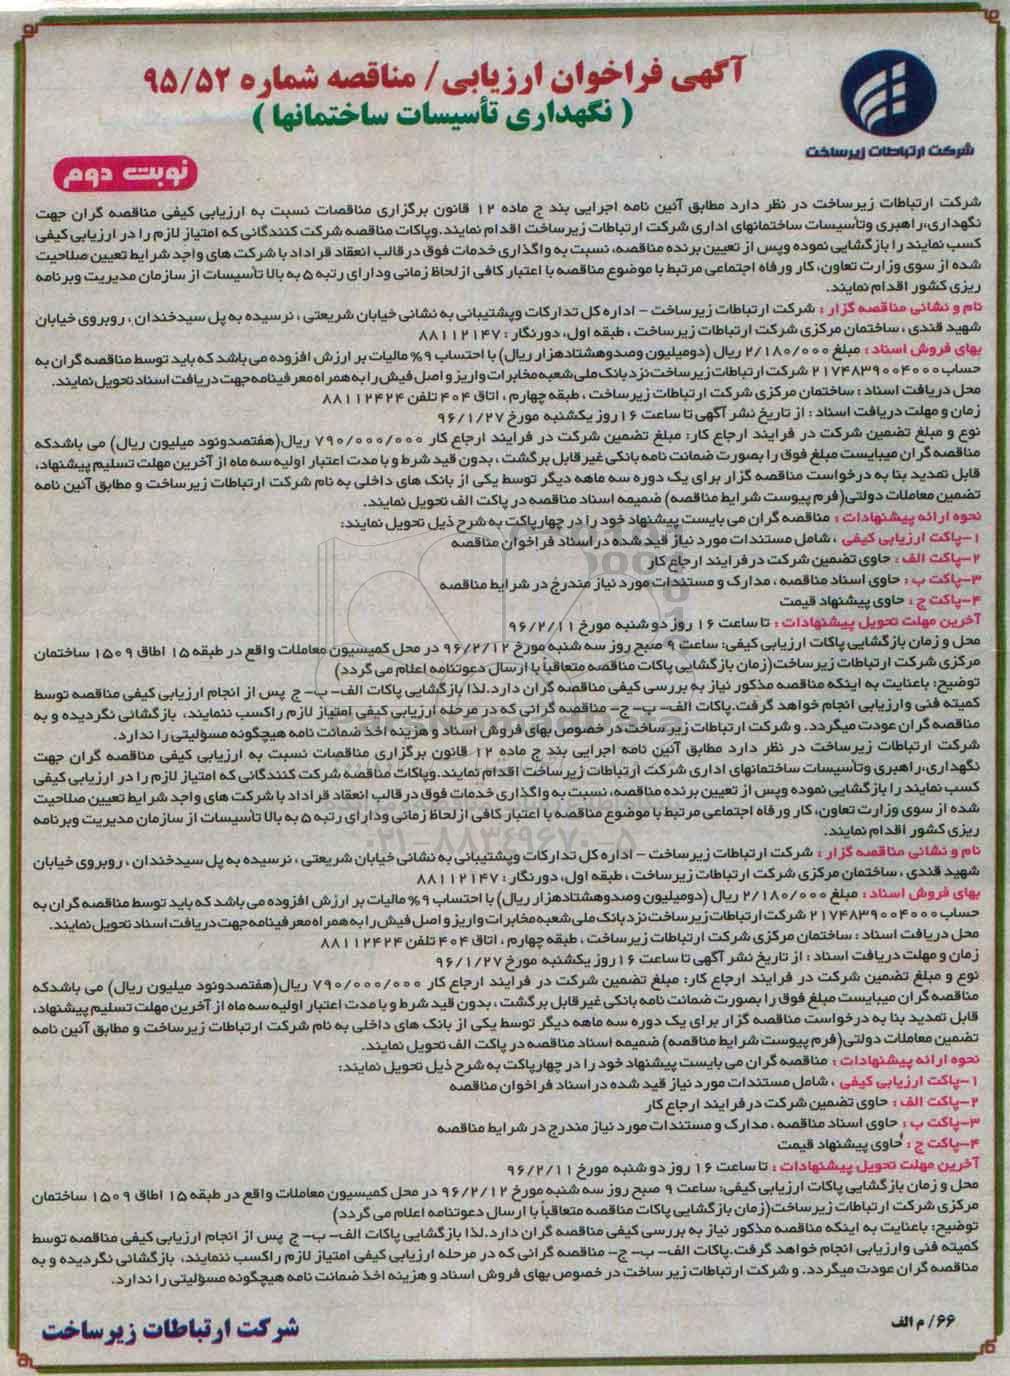 آگهی فراخوان ارزیابی/ مناقصه شماره ۹۵/۵۲
( نگهداری تأسیسات ساختمانها )
شرکت ارتباطات زیرساخت
نوبت دوم
شرکت ارتباطات زیرساخت در نظر دارد مطابق آئین نامه اجرایی بند ج ماده ۱۲ قانون برگزاری مناقصات نسبت به ارزیابی کیفی مناقصه گران جهت
نگهداری،راهبری وتأسیسات ساختمانهای اداری شرکت ارتباطات زیرساخت اقدام نمایند.وپاکات مناقصه شرکت کنندگانی که امتیاز لازم را در ارزیابی کیفی
کسب نمایند را بازگشایی نموده وپس از تعیین برنده مناقصه، نسبت به واگذاری خدمات فوق درقالب انعقاد قراداد با شرکت های واجد شرایط تعیین صلاحیت
شده از سوی وزارت تعاون، کار ورفاه اجتماعی مرتبط با موضوع مناقصه با اعتبار کافی ازلحاظ زمانی ودارای رتبه ۵ به بالا تأسیسات از سازمان مدیریت وبرنامه
ریزی کشور اقدام نمایند.
نام و نشانی مناقصه گزار : شرکت ارتباطات زیرساخت - اداره کل تدارکات وپشتیبانی به نشانی خیابان شریعتی ، نرسیده به پل سیدخندان ، روبروی خیابان
شهید قندی ، ساختمان مرکزی شرکت ارتباطات زیرساخت ، طبقه اول، دورنگار : ۸۸۱۱۲۱۴۷
بهای فروش اسناد : مبلغ ۲/۱۸۰/۰۰۰ ریال (دومیلیون وصدوهشتادهزار ریال) با احتساب ۹% مالیات بر ارزش افزوده می باشد که باید توسط مناقصه گران به
حساب ۲۱۷۴۸۳۹۰۰۴۰۰۰ شرکت ارتباطات زیرساخت نزد بانک ملی شعبه مخابرات واریز و اصل فیش را به همراه معرفینامه جهت دریافت اسناد تحویل نمایند.
محل دریافت اسناد : ساختمان مرکزی شرکت ارتباطات زیرساخت ، طبقه چهارم ، اتاق ۴۰۴ تلفن ۸۸۱۱۲۴۲۴
زمان و مهلت دریافت اسناد : از تاریخ نشر آگهی تا ساعت ۱۶ روز یکشنبه مورخ ۹۶/۱/۲۷
نوع و مبلغ تضمین شرکت در فرایند ارجاع کار: مبلغ تضمین شرکت در فرایند ارجاع کار ۷۹۰/۰۰۰/۰۰۰ ریال(هفتصدونود میلیون ریال) می باشدکه
مناقصه گران میبایست مبلغ فوق را بصورت ضمانت نامه بانکی غیرقابل برگشت ، بدون قید شرط و با مدت اعتبار اولیه سه ماه از آخرین مهلت تسلیم پیشنهاد،
قابل تمدید بنا به درخواست مناقصه گزار برای یک دوره سه ماهه دیگر توسط یکی از بانک های داخلی به نام شرکت ارتباطات زیرساخت و مطابق آئین نامه
تضمین معاملات دولتی(فرم پیوست شرایط مناقصه) ضمیمه اسناد مناقصه در پاکت الف تحویل نمایند.
نحوه ارائه پیشنهادات : مناقصه گران می بایست پیشنهاد خود را در چهارپاکت به شرح ذیل تحویل نمایند:
۱-پاکت ارزیابی کیفی ، شامل مستندات مورد نیاز قید شده در اسناد فراخوان مناقصه
۲-پاکت الف : حاوی تضمین شرکت درفرایند ارجاع کار
۳-پاکت ب : حاوی اسناد مناقصه ، مدارک و مستندات مورد نیاز مندرج در شرایط مناقصه
۴-پاکت ج : حاوی پیشنهاد قیمت
آخرین مهلت تحویل پیشنهادات : تا ساعت ۱۶ روز دوشنبه مورخ ۹۶/۲/۱۱
محل و زمان بازگشایی پاکات ارزیابی کیفی: ساعت ۹ صبح روز سه شنبه مورخ ۹۶/۲/۱۲ در محل کمیسیون معاملات واقع در طبقه ۱۵ اطاق ۱۵۰۹ ساختمان
مرکزی شرکت ارتباطات زیرساخت(زمان بازگشایی پاکات مناقصه متعاقباً با ارسال دعوتنامه اعلام می گردد)
توضیح: باعنایت به اینکه مناقصه مذکور نیاز به بررسی کیفی مناقصه گران دارد.لذا بازگشایی پاکات الف- ب- ج پس از انجام ارزیابی کیفی مناقصه توسط
کمیته فنی وارزیابی انجام خواهد گرفت.پاکات الف- ب- ج- مناقصه گرانی که در مرحله ارزیابی کیفی امتیاز لازم راکسب ننمایند، بازگشائی نگردیده و به
مناقصه گران عودت میگردد. و شرکت ارتباطات زیر ساخت در خصوص بهای فروش اسناد و هزینه اخذ ضمانت نامه هیچگونه مسؤلیتی را ندارد.
شرکت ارتباطات زیرساخت در نظر دارد مطابق آئین نامه اجرایی بند ج ماده ۱۲ قانون برگزاری مناقصات نسبت به ارزیابی کیفی مناقصه گران جهت
نگهداری،راهبری وتأسیسات ساختمانهای اداری شرکت ارتباطات زیرساخت اقدام نمایند.وپاکات مناقصه شرکت کنندگانی که امتیاز لازم را در ارزیابی کیفی
کسب نمایند را بازگشایی نموده وپس از تعیین برنده مناقصه، نسبت به واگذاری خدمات فوق درقالب انعقاد قراداد با شرکت های واجد شرایط تعیین صلاحیت
شده از سوی وزارت تعاون، کار ورفاه اجتماعی مرتبط با موضوع مناقصه با اعتبار کافی ازلحاظ زمانی ودارای رتبه ۵ به بالا تأسیسات از سازمان مدیریت وبرنامه
ریزی کشور اقدام نمایند.
نام و نشانی مناقصه گزار : شرکت ارتباطات زیرساخت - اداره کل تدارکات وپشتیبانی به نشانی خیابان شریعتی ، نرسیده به پل سیدخندان ، روبروی خیابان
شهید قندی ، ساختمان مرکزی شرکت ارتباطات زیرساخت ، طبقه اول، دورنگار : ۸۸۱۱۲۱۴۷
بهای فروش اسناد : مبلغ ۲/۱۸۰/۰۰۰ ریال (دومیلیون وصدوهشتادهزار ریال) با احتساب ۹% مالیات بر ارزش افزوده می باشد که باید توسط مناقصه گران به
حساب ۲۱۷۴۸۳۹۰۰۴۰۰۰ شرکت ارتباطات زیرساخت نزد بانک ملی شعبه مخابرات واریز و اصل فیش را به همراه معرفینامه جهت دریافت اسناد تحویل نمایند.
محل دریافت اسناد : ساختمان مرکزی شرکت ارتباطات زیرساخت ، طبقه چهارم ، اتاق ۴۰۴ تلفن ۸۸۱۱۲۴۲۴
زمان و مهلت دریافت اسناد : از تاریخ نشر آگهی تا ساعت ۱۶ روز یکشنبه مورخ ۹۶/۱/۲۷
نوع و مبلغ تضمین شرکت در فرایند ارجاع کار: مبلغ تضمین شرکت در فرایند ارجاع کار ۷۹۰/۰۰۰/۰۰۰ ریال(هفتصدونود میلیون ریال) می باشدکه
مناقصه گران میبایست مبلغ فوق را بصورت ضمانت نامه بانکی غیرقابل برگشت ، بدون قید شرط و با مدت اعتبار اولیه سه ماه از آخرین مهلت تسلیم پیشنهاد،
قابل تمدید بنا به درخواست مناقصه گزار برای یک دوره سه ماهه دیگر توسط یکی از بانک های داخلی به نام شرکت ارتباطات زیرساخت و مطابق آئین نامه
تضمین معاملات دولتی(فرم پیوست شرایط مناقصه) ضمیمه اسناد مناقصه در پاکت الف تحویل نمایند.
نحوه ارائه پیشنهادات : مناقصه گران می بایست پیشنهاد خود را در چهارپاکت به شرح ذیل تحویل نمایند:
۱-پاکت ارزیابی کیفی ، شامل مستندات مورد نیاز قید شده در اسناد فراخوان مناقصه
۲-پاکت الف : حاوی تضمین شرکت درفرایند ارجاع کار
۳-پاکت ب : حاوی اسناد مناقصه ، مدارک و مستندات مورد نیاز مندرج در شرایط مناقصه
۴-پاکت ج : حاوی پیشنهاد قیمت
آخرین مهلت تحویل پیشنهادات : تا ساعت ۱۶ روز دوشنبه مورخ ۹۶/۲/۱۱
محل و زمان بازگشایی پاکات ارزیابی کیفی: ساعت ۹ صبح روز سه شنبه مورخ ۹۶/۲/۱۲ در محل کمیسیون معاملات واقع در طبقه ۱۵ اطاق ۱۵۰۹ ساختمان
مرکزی شرکت ارتباطات زیرساخت(زمان بازگشایی پاکات مناقصه متعاقباً با ارسال دعوتنامه اعلام می گردد)
توضیح: باعنایت به اینکه مناقصه مذکور نیاز به بررسی کیفی مناقصه گران دارد.لذا بازگشایی پاکات الف- ب- ج پس از انجام ارزیابی کیفی مناقصه توسط
کمیته فنی وارزیابی انجام خواهد گرفت.پاکات الف- ب- ج- مناقصه گرانی که در مرحله ارزیابی کیفی امتیاز لازم راکسب ننمایند، بازگشائی نگردیده و به
مناقصه گران عودت میگردد. و شرکت ارتباطات زیر ساخت در خصوص بهای فروش اسناد و هزینه اخذ ضمانت نامه هیچگونه مسؤلیتی را ندارد.
۶۶/ م الف
شرکت ارتباطات زیرساخت